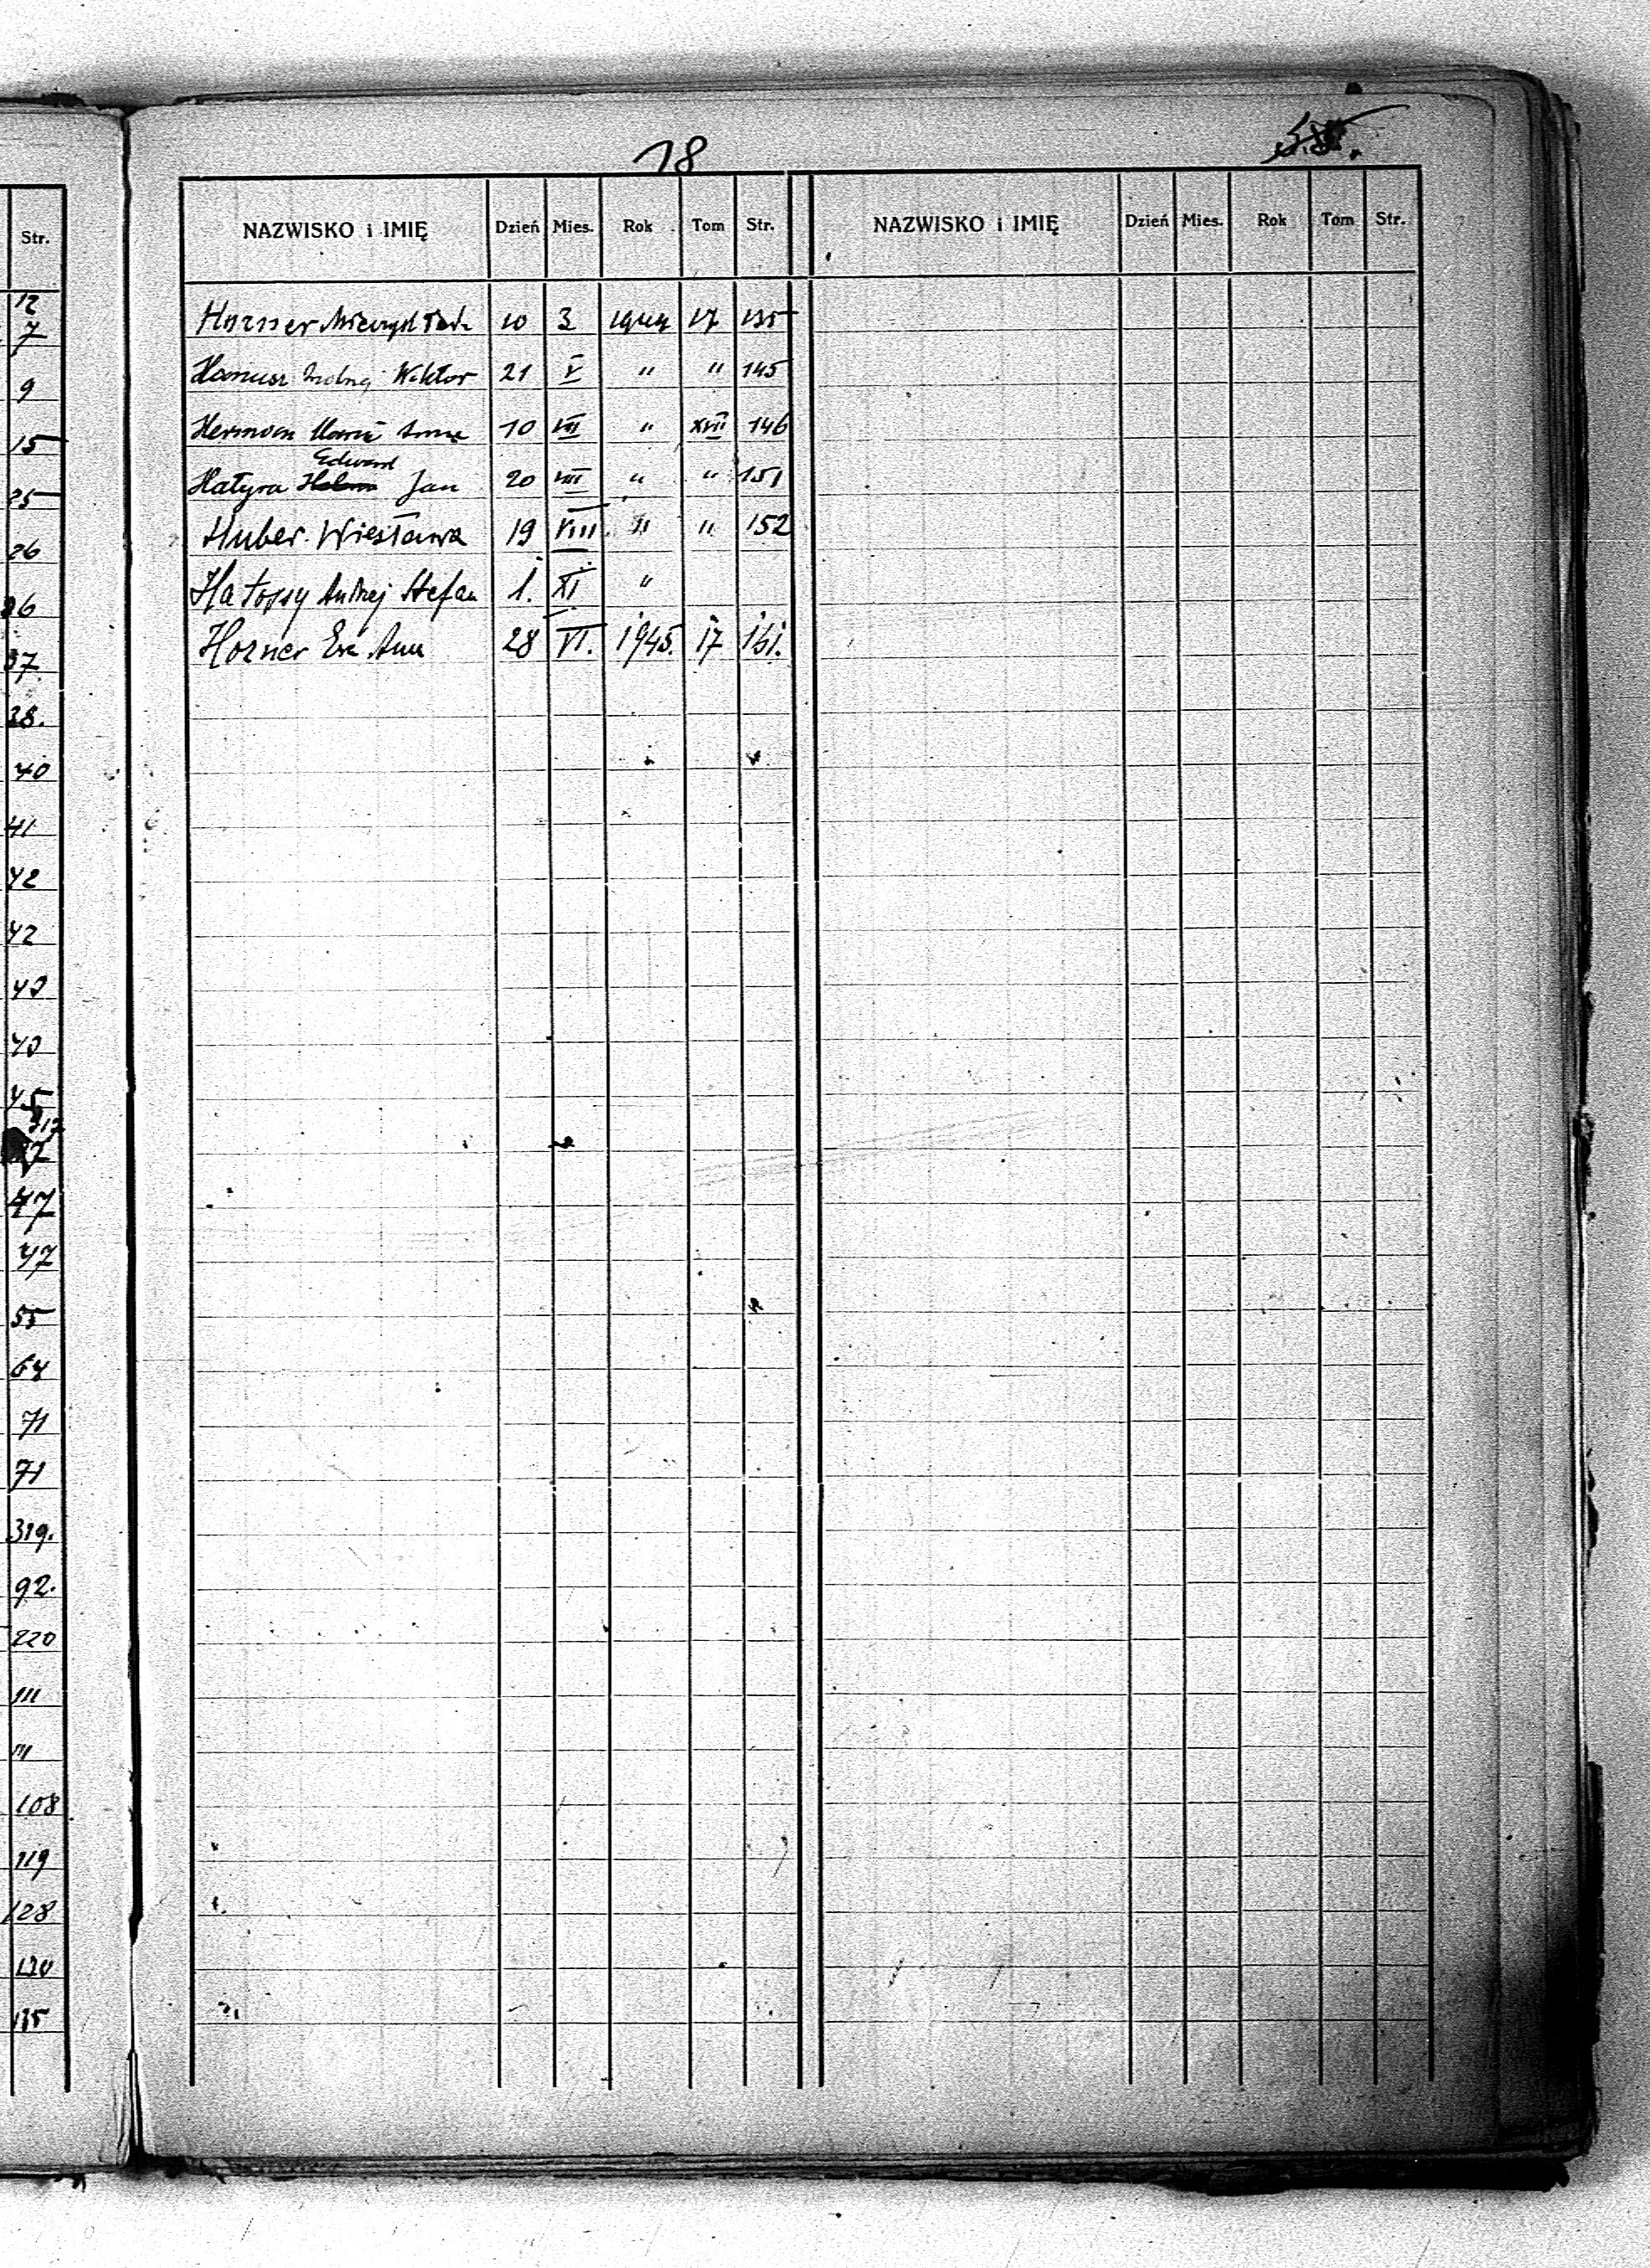 Str.
12
7
9
15
25
26
37
28.
40
41
42
42
43
43
45
47
47
55
64
71
71
319.
92.
220
111
111
108
119
128
130
135
18
NAZWISKO i IMIĘ Dzień Mies. Rok Tom Str. NAZWISKO i IMIĘ Dzień Mies. Rok Tom Str.
Horner 10 3 1944 17 135
Hanusz Wiktor 21 V " " 145
Herman Maria Anna 10 VII " XVII 146
Edward
Hałyra Jan 20 VIII " " 151
Huber Wiesława 19 VIII " " 152
Andrzej Stefan 1. XI "
Horner Ewa Anna 28 VI. 1945. 17 161.